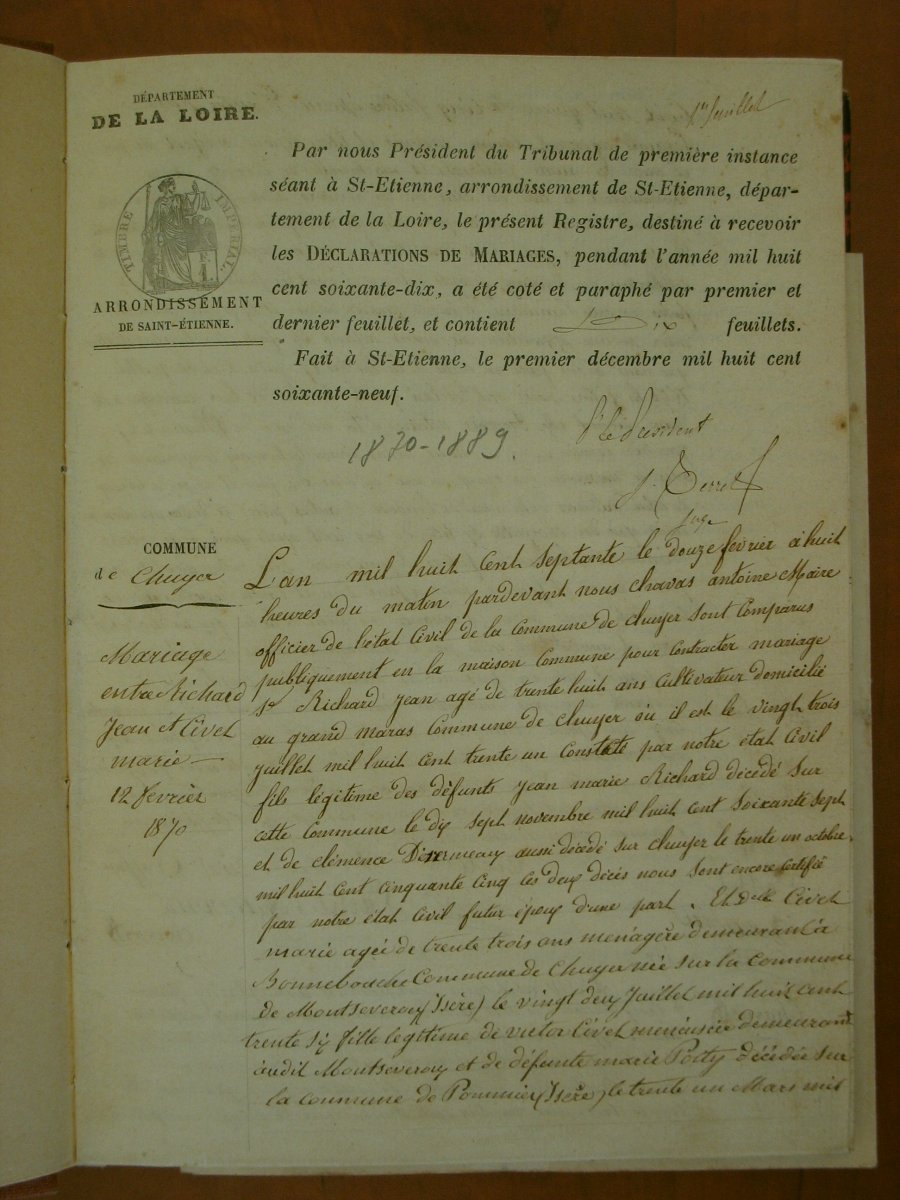 DÉPARTEMENT
DE LA LOIRE.
1er feuillet
Par nous Président du Tribunal de première instance
séant à St-Etienne, arrondissement de St-Etienne, dépar-
tement de la Loire, le présent Registre, destiné à recevoir
les DÉCLARATIONS DE MARIAGES, pendant l'année mil huit
cent soixante-dix, a été coté et paraphé par premier et
dernier feuillet, et contient Dix feuillets.
Fait à St-Etienne, le premier décembre mil huit cent
soixante-neuf.
TIMBRE IMPÉRIAL
ARRONDISSEMENT
DE SAINT-ÉTIENNE.
1870-1889.
Le Président
juge
COMMUNE
de Chuyer
Mariage
entre Richard
Jean et Civet
marie
12 février
1870
Lan mil huit cent septante le douze février à huit
heures du matin pardevant nous chavas antoine Maire
officier de l'état Civil de la Commune de chuyer sont Comparus
publiquement en la maison Commune pour Contracter mariage
sr Richard jean agé de trente huit ans Cultivateur domicilié
au grand maras Commune de Chuyer où il est le vingt trois
juillet mil huit cent trente un Constaté par notre état Civil
fils légitime des défunts jean marie Richard décédé sur
cette Commune le dix sept novembre mil huit cent soixante sept
et de clémence aussi décédé sur chuyer le trente un octobre
mil huit cent cinquante cinq les deux décès nous sont encore certifié
par notre état Civil futur époux d'une part. Et dlle Civet
marie agée de trente trois ans menagère demeurant à
Bonnebouche Commune de Chuyer née sur la commune
de Montseveroux (Isère) le vingt deux Juillet mil huit cent
trente six fille legitime de victor Civet menuisier demeurant
audit Montseveroux et de défunte marie décédée sur
la commune de Pommier (Isère) le trente un Mars mil